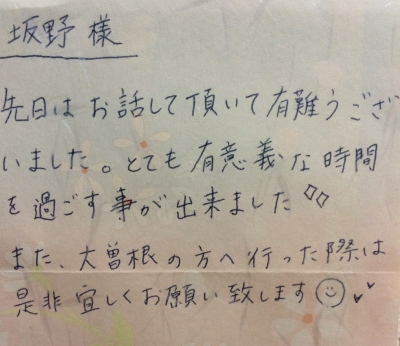 坂野様
先日はお話して頂いて有難うござ
いました。とても有意義な時間
を過ごす事が出来ました
また、大曽根の方へ行った際は
是非宜しくお願い致します